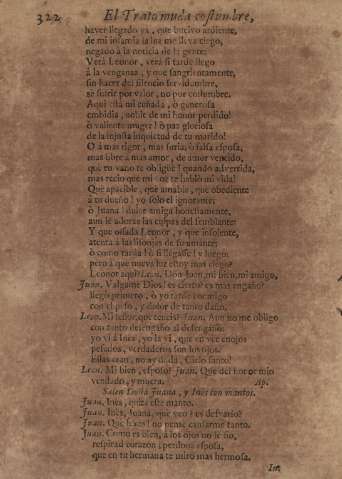 322 El Trato muda costumbre,
haver llegado ya, que
de mi infamia la luz me lleva ciego,
negado à la noticia de la gente:
Verà Leonor, verà si tarde llego
à la venganza, y que sangrientamente,
sin hazer del silencio servidumbre,
sè sufrir por valor, no por costumbre.
Aqui està mi cuñada, ò generosa
embidia, noble de mi honor perdido!
ò valiente muger! ò paz gloriosa
de la injusta inquietud de tu marido!
O à mas rigor, mas furia, ò falsa esposa,
mas libre à mas amor, de amor vencido,
que en vano te obliguè! quando advertida,
mas recio que mi te hablò mi vida!
Què apacible, què amable, què obediente
à tu dueño! yo solo el ignorante;
ò Juana! dulce amiga honestamente,
aun le adoras las culpas del semblante:
Y que ossada Leonor, y que insolente,
atenta à las lisonjas de su amante;
ò como tarda! ò si llegasse! y luego;
pero à què nueva luz estoy mas ciego?
Leonor aqui? Leon. Don Juan, mi bien, mi amigo,
Juan. Valgame Dios! es cierto? es mas engaño?
llegò primero, ò yo tarde conmigo
con el peso, y dolor de tanto daño.
Leon. Mi señor, què teneis? Juan. Aun no me obligo
con tanto desengaño al desengaño:
yo vi à Inès, yo la vi, que en vez enojos
pesados, verdaderos son los ojos:
ellas eran, no ay duda, Cielo santo!
Leon. Mi bien, esposo? Juan. Que del honor mio
vendado, y muera. Ap.
Salen Doña Juana, y Inès con mantos.
Juan. Inès, quita este manto.
Juan. Inès, Juana, que veo? es desvario?
Juan. Què hazes? no pense cansarme tanto.
Juan. Como es bien, à los ojos no le fio,
respirad corazon; perdona esposa,
que en tu hermana te miro mas hermosa.